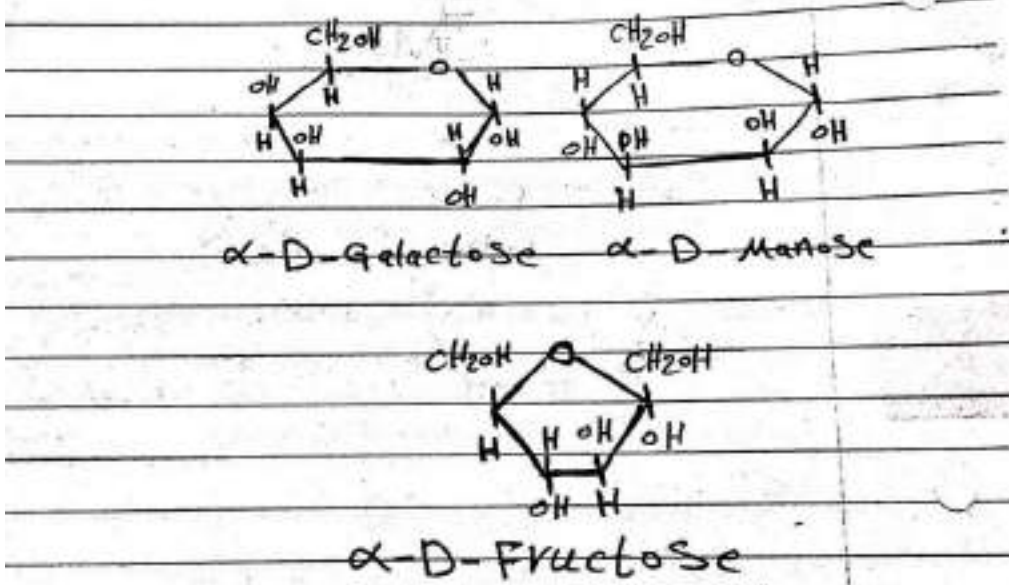 CH2OH CH2OH
O O
OH H H H
H H
H OH H OH OH OH OH OH
H OH H H
α-D-Galactose α-D-Manose
CH2OH O CH2OH
H H OH OH
OH H
α-D-Fructose